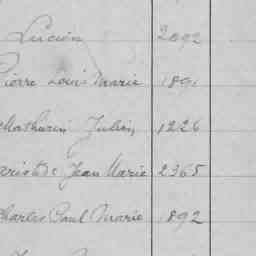 Lucien 2092
Pierre Louis Marie 189
Mathurin Julien 1226
Jean Marie 2365
Charles Paul Marie 892